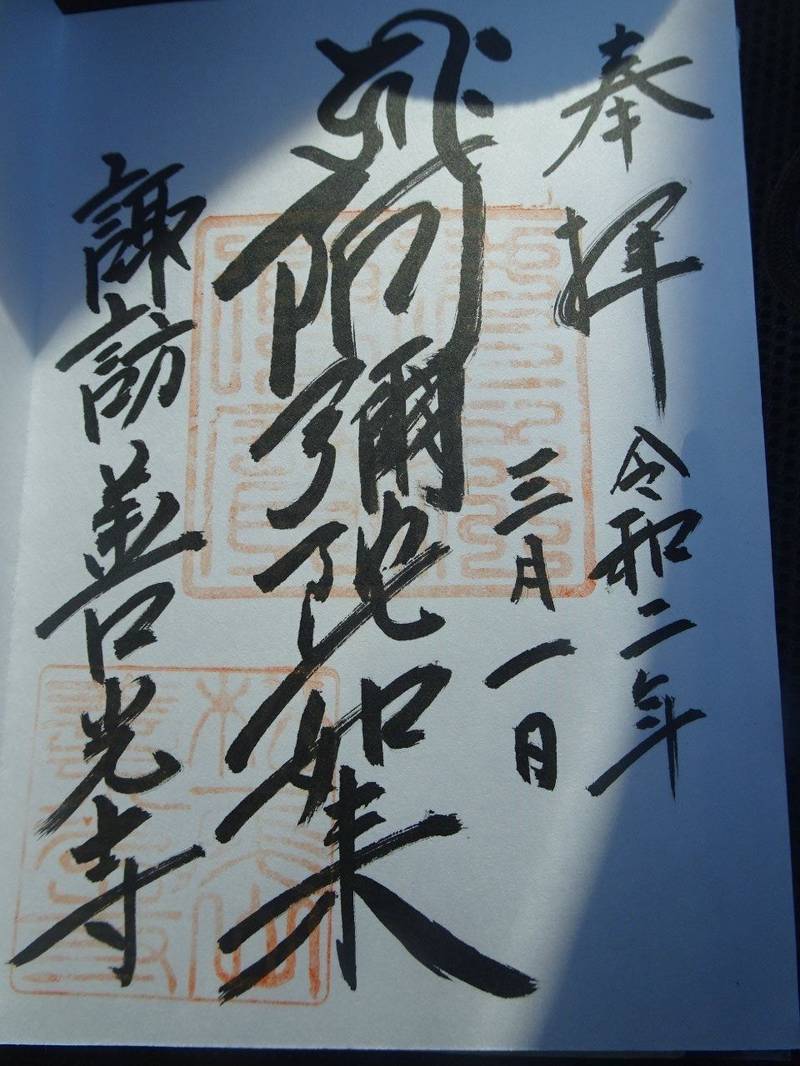 奉拝
令和二年
三月一日
阿彌陀如来
諏訪善光寺